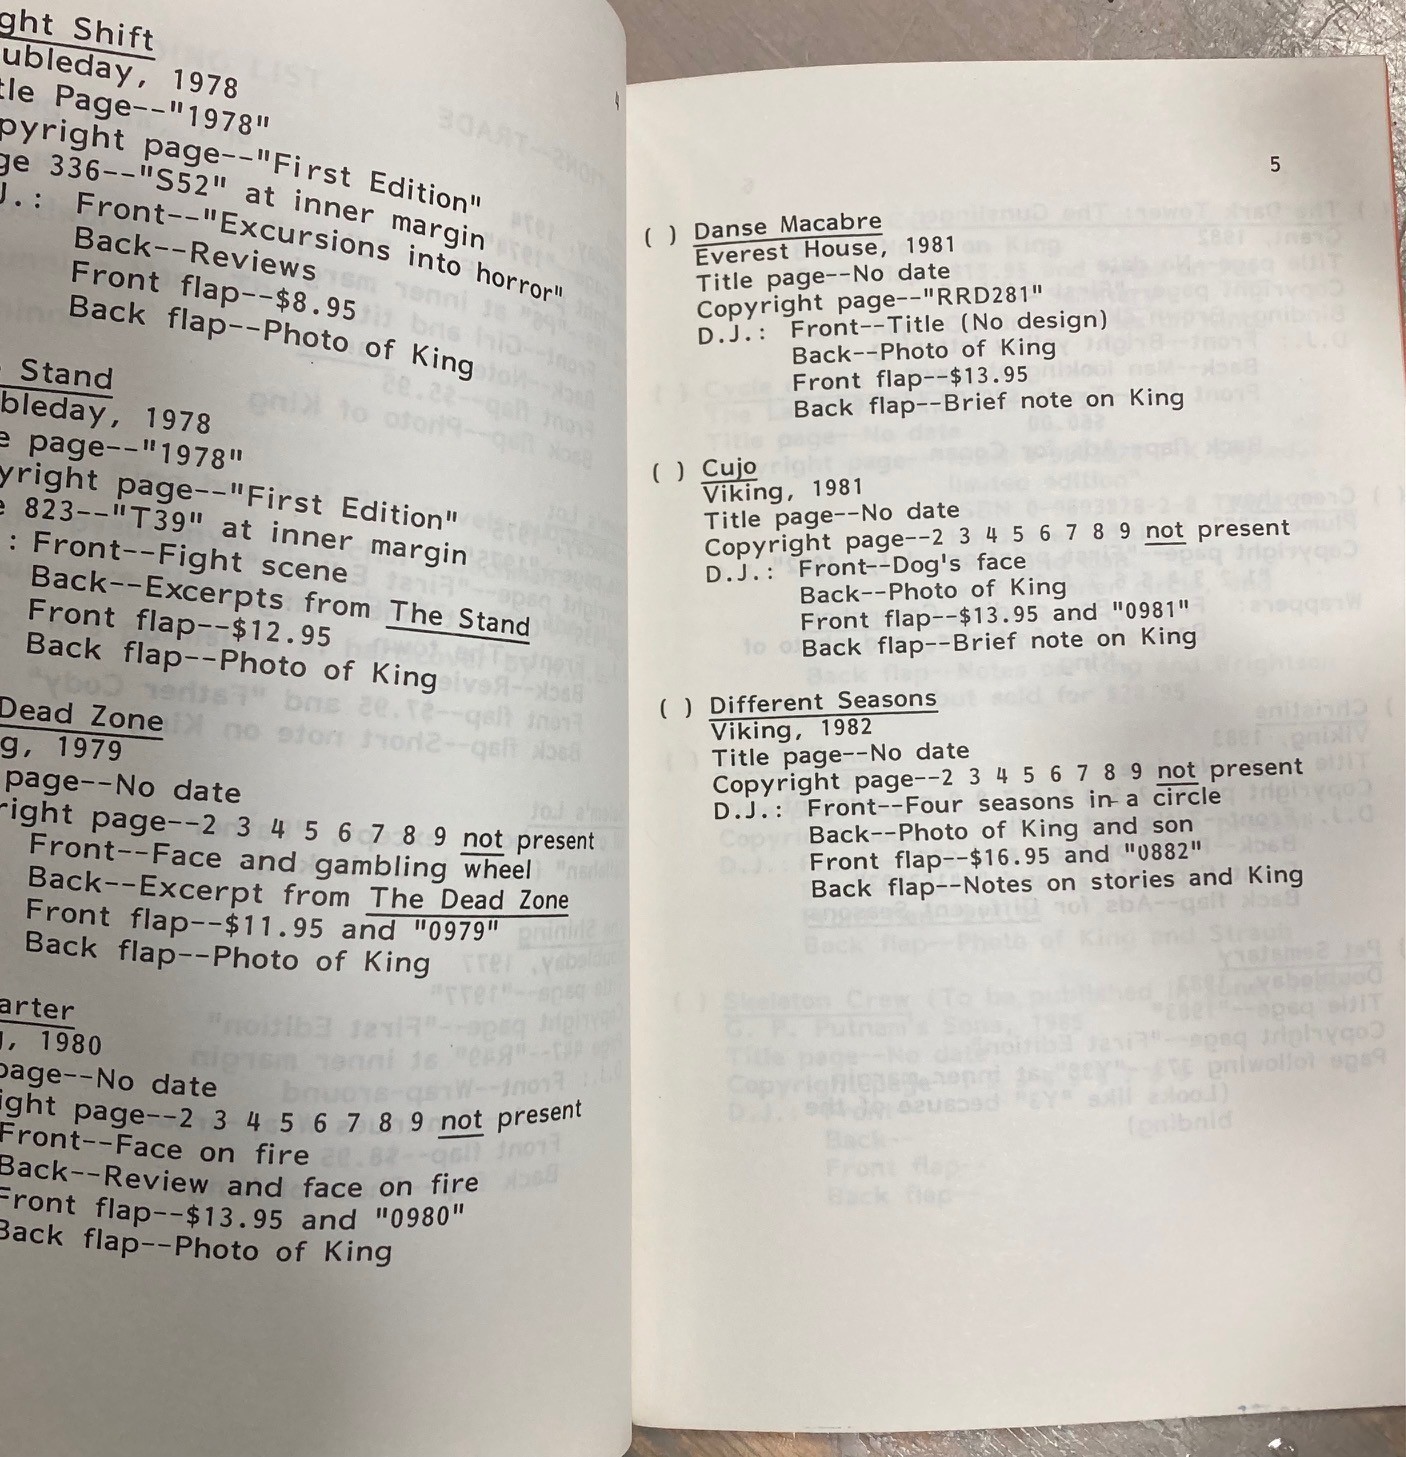 ght Shift
ubleday, 1978
tle Page--"1978"
pyright page--"First Edition"
ge 336--"S52" at inner margin
J.: Front--"Excursions into horror"
Back--Reviews
Front flap--$8.95
Back flap--Photo of King
Stand
bleday, 1978
e page--"1978"
yright page--"First Edition"
e 823--"T39" at inner margin
: Front--Fight scene
Back--Excerpts from The Stand
Front flap--$12.95
Back flap--Photo of King
Dead Zone
g, 1979
page--No date
right page--2 3 4 5 6 7 8 9 not present
Front--Face and gambling wheel
Back--Excerpt from The Dead Zone
Front flap--$11.95 and "0979"
Back flap--Photo of King
arter
, 1980
page--No date
ight page--2 3 4 5 6 7 8 9 not present
Front--Face on fire
Back--Review and face on fire
Front flap--$13.95 and "0980"
Back flap--Photo of King
5
( ) Danse Macabre
Everest House, 1981
Title page--No date
Copyright page--"RRD281"
D.J.: Front--Title (No design)
Back--Photo of King
Front flap--$13.95
Back flap--Brief note on King
( ) Cujo
Viking, 1981
Title page--No date
Copyright page--2 3 4 5 6 7 8 9 not present
D.J.: Front--Dog's face
Back--Photo of King
Front flap--$13.95 and "0981"
Back flap--Brief note on King
( ) Different Seasons
Viking, 1982
Title page--No date
Copyright page--2 3 4 5 6 7 8 9 not present
D.J.: Front--Four seasons in a circle
Back--Photo of King and son
Front flap--$16.95 and "0882"
Back flap--Notes on stories and King